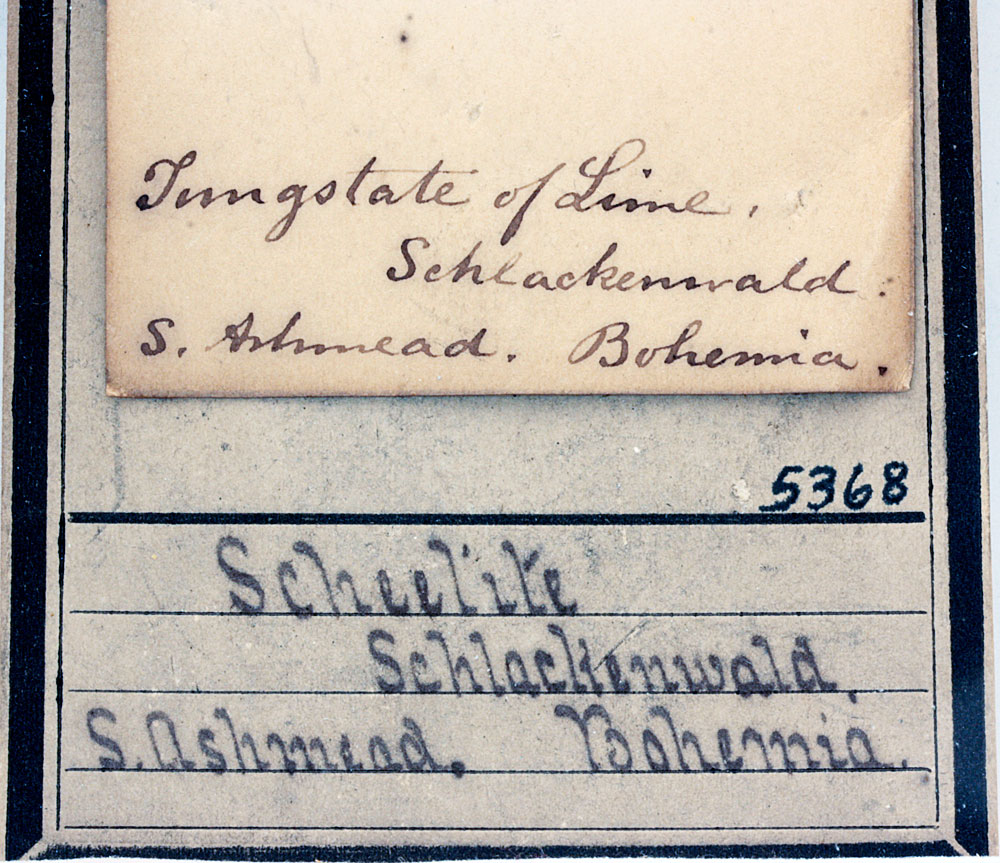 Tungstate of Lime.
Schlackenwald.
S. Ashmead. Bohemia.
5368
Scheelite
Schlackenwald.
S. Ashmead. Bohemia.